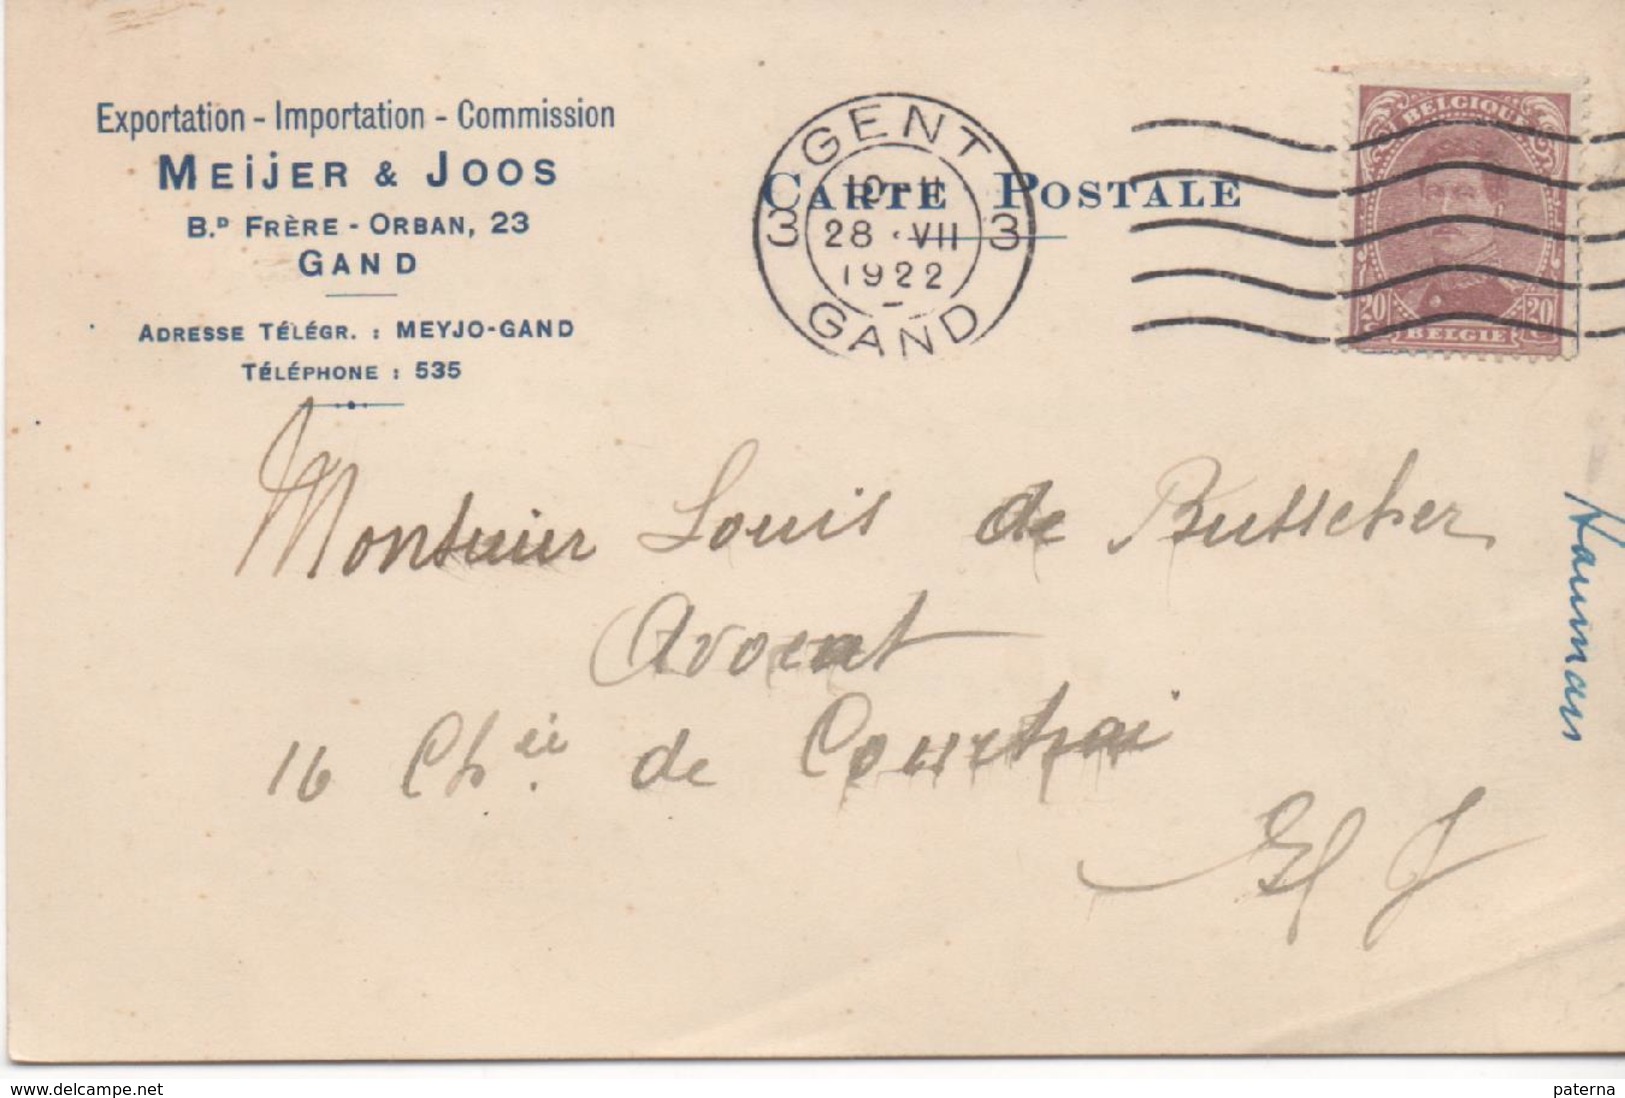 Exportation - Importation - Commission
MEIJER & JOOS
B.D FRÈRE - ORBAN, 23
GAND
ADRESSE TÉLÉGR. : MEYJO-GAND
TÉLÉPHONE : 535
CARTE POSTALE
GENT
3 3
28 · VII
1922
GAND
BELGIQUE
20 20
BELGIE
Monsieur Louis de Busscher
Avocat
16 Chée de Courtrai
www.delcampe.net
paterna